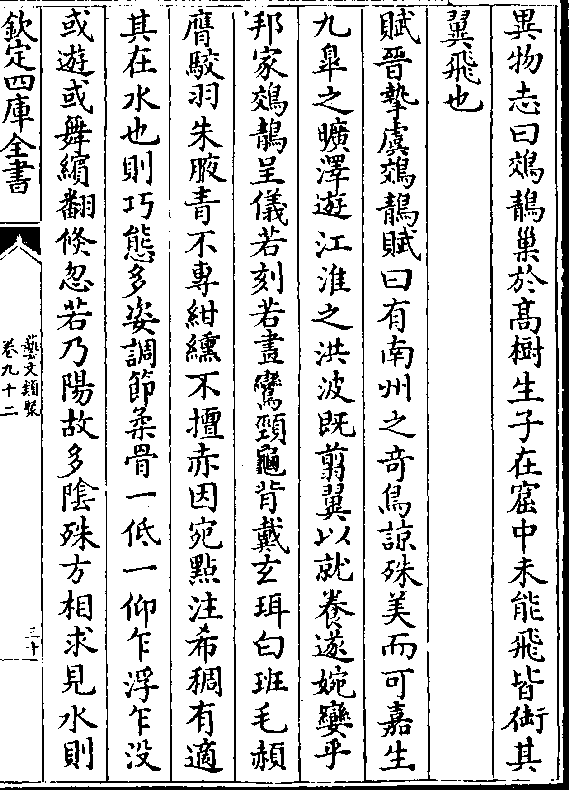 異物志曰鵁鶄巢於髙樹生子在窟中未能飛皆銜其
翼飛也
賦晉摯虞鵁鶄賦曰有南州之奇鳥諒殊美而可嘉生
九臯之曠澤遊江淮之洪波既剪翼以就養遂婉孌乎
邦家鵁鶄呈儀若刻若畫鸞頸龜背戴玄珥白班毛赬
膺駮羽朱腋青不專紺纁不擅赤因宛點注希稠有適
其在水也則巧態多姿調節柔骨一低一仰乍浮乍没
或遊或舞繽翻倏忽若乃陽故多隂殊方相求見水則
欽定四庫全書
藝文類聚
卷九十二
三十